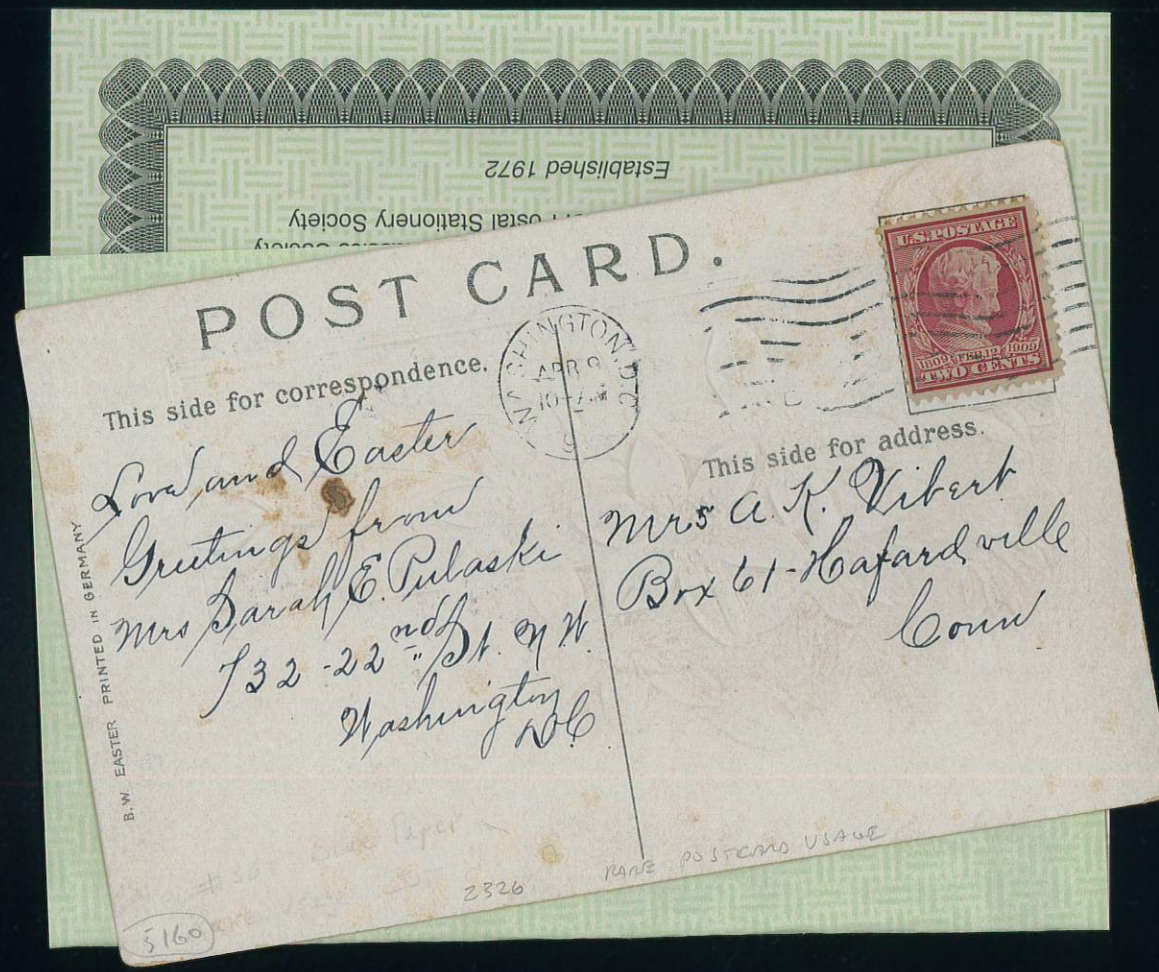 Established 1972
Postal Stationery Society
POST CARD.
This side for correspondence.
WASHINGTON, D.C.
APR 9
10 - AM
9
U.S. POSTAGE
1809 FEB. 12 1909
TWO CENTS
This side for address.
Love and Easter
Greetings from
Mrs Sarah E. Pulaski
732 - 22nd St. N.W.
Washington
D.C.
Mrs A. K. Vibert
Box 61 - Hafardville
Conn
B.W. EASTER PRINTED IN GERMANY
Blue Paper
2326
RARE POSTCARD USAGE
5160